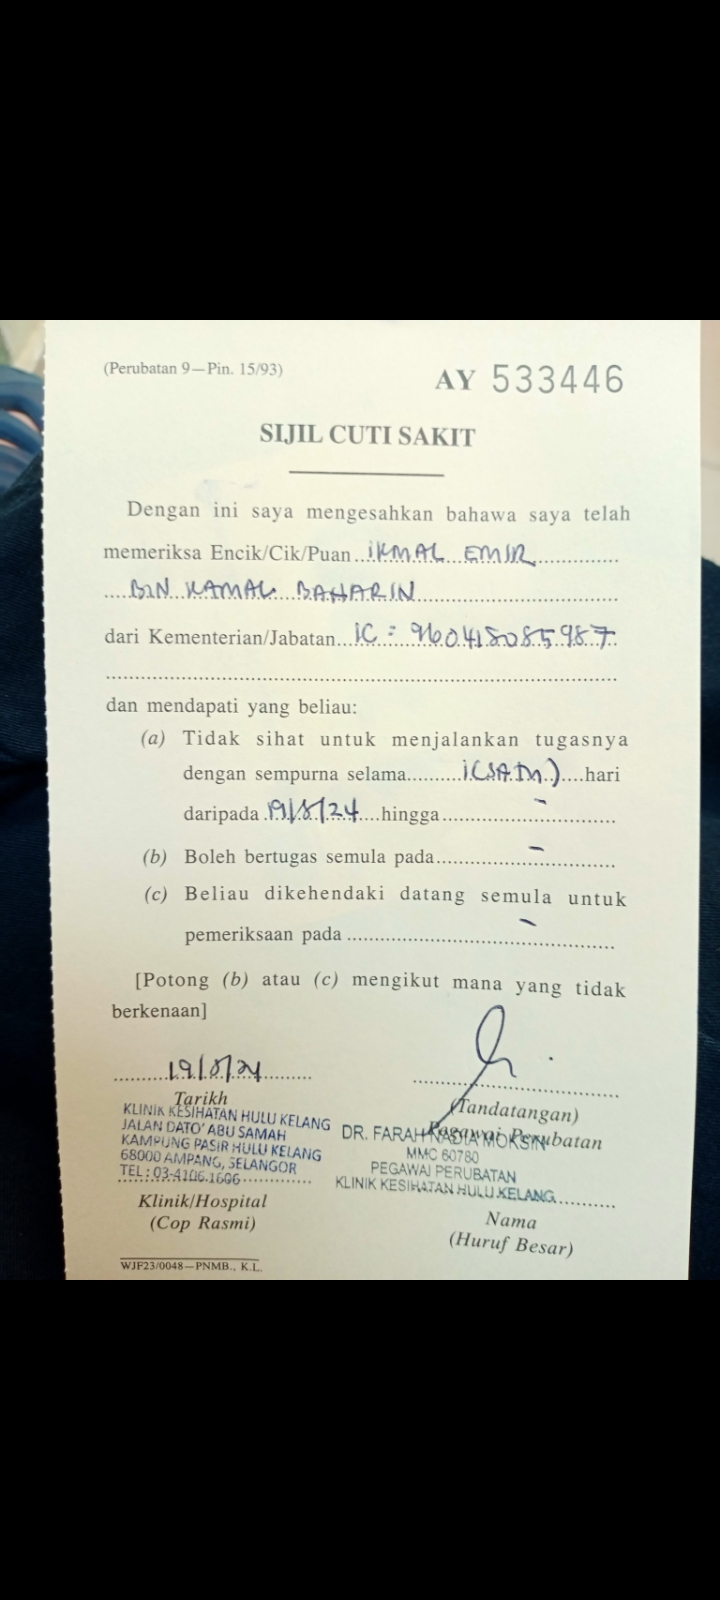 (Perubatan 9—Pin. 15/93)
AY 533446
SIJIL CUTI SAKIT
Dengan ini saya mengesahkan bahawa saya telah
memeriksa Encik/Cik/Puan...IKMAL EMIR...
...BIN KAMAL BAHARIN...
dari Kementerian/Jabatan...IC : 960418085987
dan mendapati yang beliau:
(a) Tidak sihat untuk menjalankan tugasnya
dengan sempurna selama...1(SATU)...hari
daripada 19/8/24...hingga... -
(b) Boleh bertugas semula pada... -
(c) Beliau dikehendaki datang semula untuk
pemeriksaan pada... -
[Potong (b) atau (c) mengikut mana yang tidak
berkenaan]
19/8/24
Tarikh
KLINIK KESIHATAN HULU KELANG
JALAN DATO' ABU SAMAH
KAMPUNG PASIR HULU KELANG
68000 AMPANG, SELANGOR
TEL : 03-4106 1606
Klinik/Hospital
(Cop Rasmi)
(Tandatangan)
Pegawai Perubatan
DR. FARAH NADIA MOKSIN
MMC 60780
PEGAWAI PERUBATAN
KLINIK KESIHATAN HULU KELANG
Nama
(Huruf Besar)
WJF23/0048—PNMB., K.L.